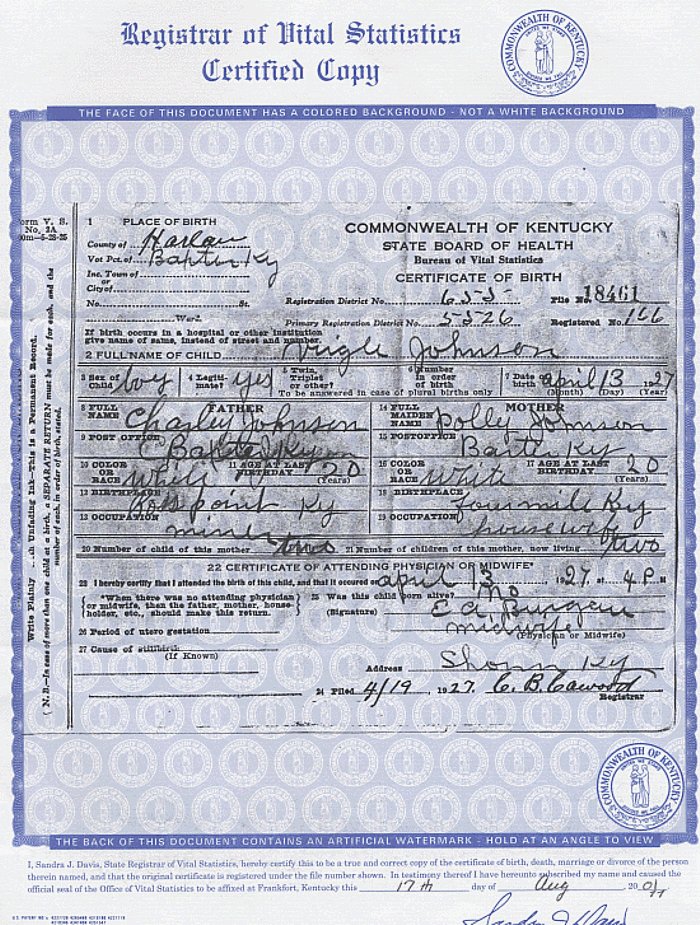 Registrar of Vital Statistics
Certified Copy
COMMONWEALTH OF KENTUCKY
THE FACE OF THIS DOCUMENT HAS A COLORED BACKGROUND - NOT A WHITE BACKGROUND
orm V. S.
No. 2A
1 PLACE OF BIRTH
County of Harlan
Vot Pct. of Baxter Ky
Inc. Town of
or
City of
No. St.
Ward.
If birth occurs in a hospital or other institution
give name of same, instead of street and number.
COMMONWEALTH OF KENTUCKY
STATE BOARD OF HEALTH
Bureau of Vital Statistics
CERTIFICATE OF BIRTH
Registration District No. 655 File No. 18461
Primary Registration District No. 5526 Registered No. 166
2 FULL NAME OF CHILD Virgle Johnson
3 Sex of Child boy 4 Legitimate? yes 5 Twin, Triplet or other? 6 Number in order of birth 7 Date of birth april 13 1927
To be answered in case of plural births only (Month) (Day) (Year)
FATHER
8 FULL NAME Charley Johnson
9 POST OFFICE Baxter Ky
10 COLOR OR RACE White 11 AGE AT LAST BIRTHDAY 20 (Years)
12 BIRTHPLACE Ross point Ky
13 OCCUPATION miner
MOTHER
14 FULL MAIDEN NAME Polly Johnson
15 POSTOFFICE Baxter Ky
16 COLOR OR RACE White 17 AGE AT LAST BIRTHDAY 20 (Years)
18 BIRTHPLACE four mile Ky
19 OCCUPATION house wife
20 Number of child of this mother two 21 Number of children of this mother, now living two
22 CERTIFICATE OF ATTENDING PHYSICIAN OR MIDWIFE*
23 I hereby certify that I attended the birth of this child, and that it occured on april 13, 1927, at 4 P. M
*When there was no attending physician
or midwife, then the father, mother, house-
holder, etc., should make this return.
25 Was this child born alive?
(Signature) E a
midwife
(Physician or Midwife)
26 Period of utero gestation
27 Cause of stillbirth
(If Known)
Address Ky
24 Filed 4/19, 1927. C. B. Cawood
Registrar
Write Plainly ...h Unfading Ink—This is a Permanent Record.
(N. B.—In case of more than one child at a birth, a SEPARATE RETURN must be made for each, and the
number of each, in order of birth, stated.
COMMONWEALTH OF KENTUCKY
THE BACK OF THIS DOCUMENT CONTAINS AN ARTIFICIAL WATERMARK - HOLD AT AN ANGLE TO VIEW
I, Sandra J. Davis, State Registrar of Vital Statistics, hereby certify this to be a true and correct copy of the certificate of birth, death, marriage or divorce of the person
therein named, and that the original certificate is registered under the file number shown. In testimony thereof I have hereunto subscribed my name and caused the
official seal of the Office of Vital Statistics to be affixed at Frankfort, Kentucky this 17th day of Aug, 20
Sandra J Davis